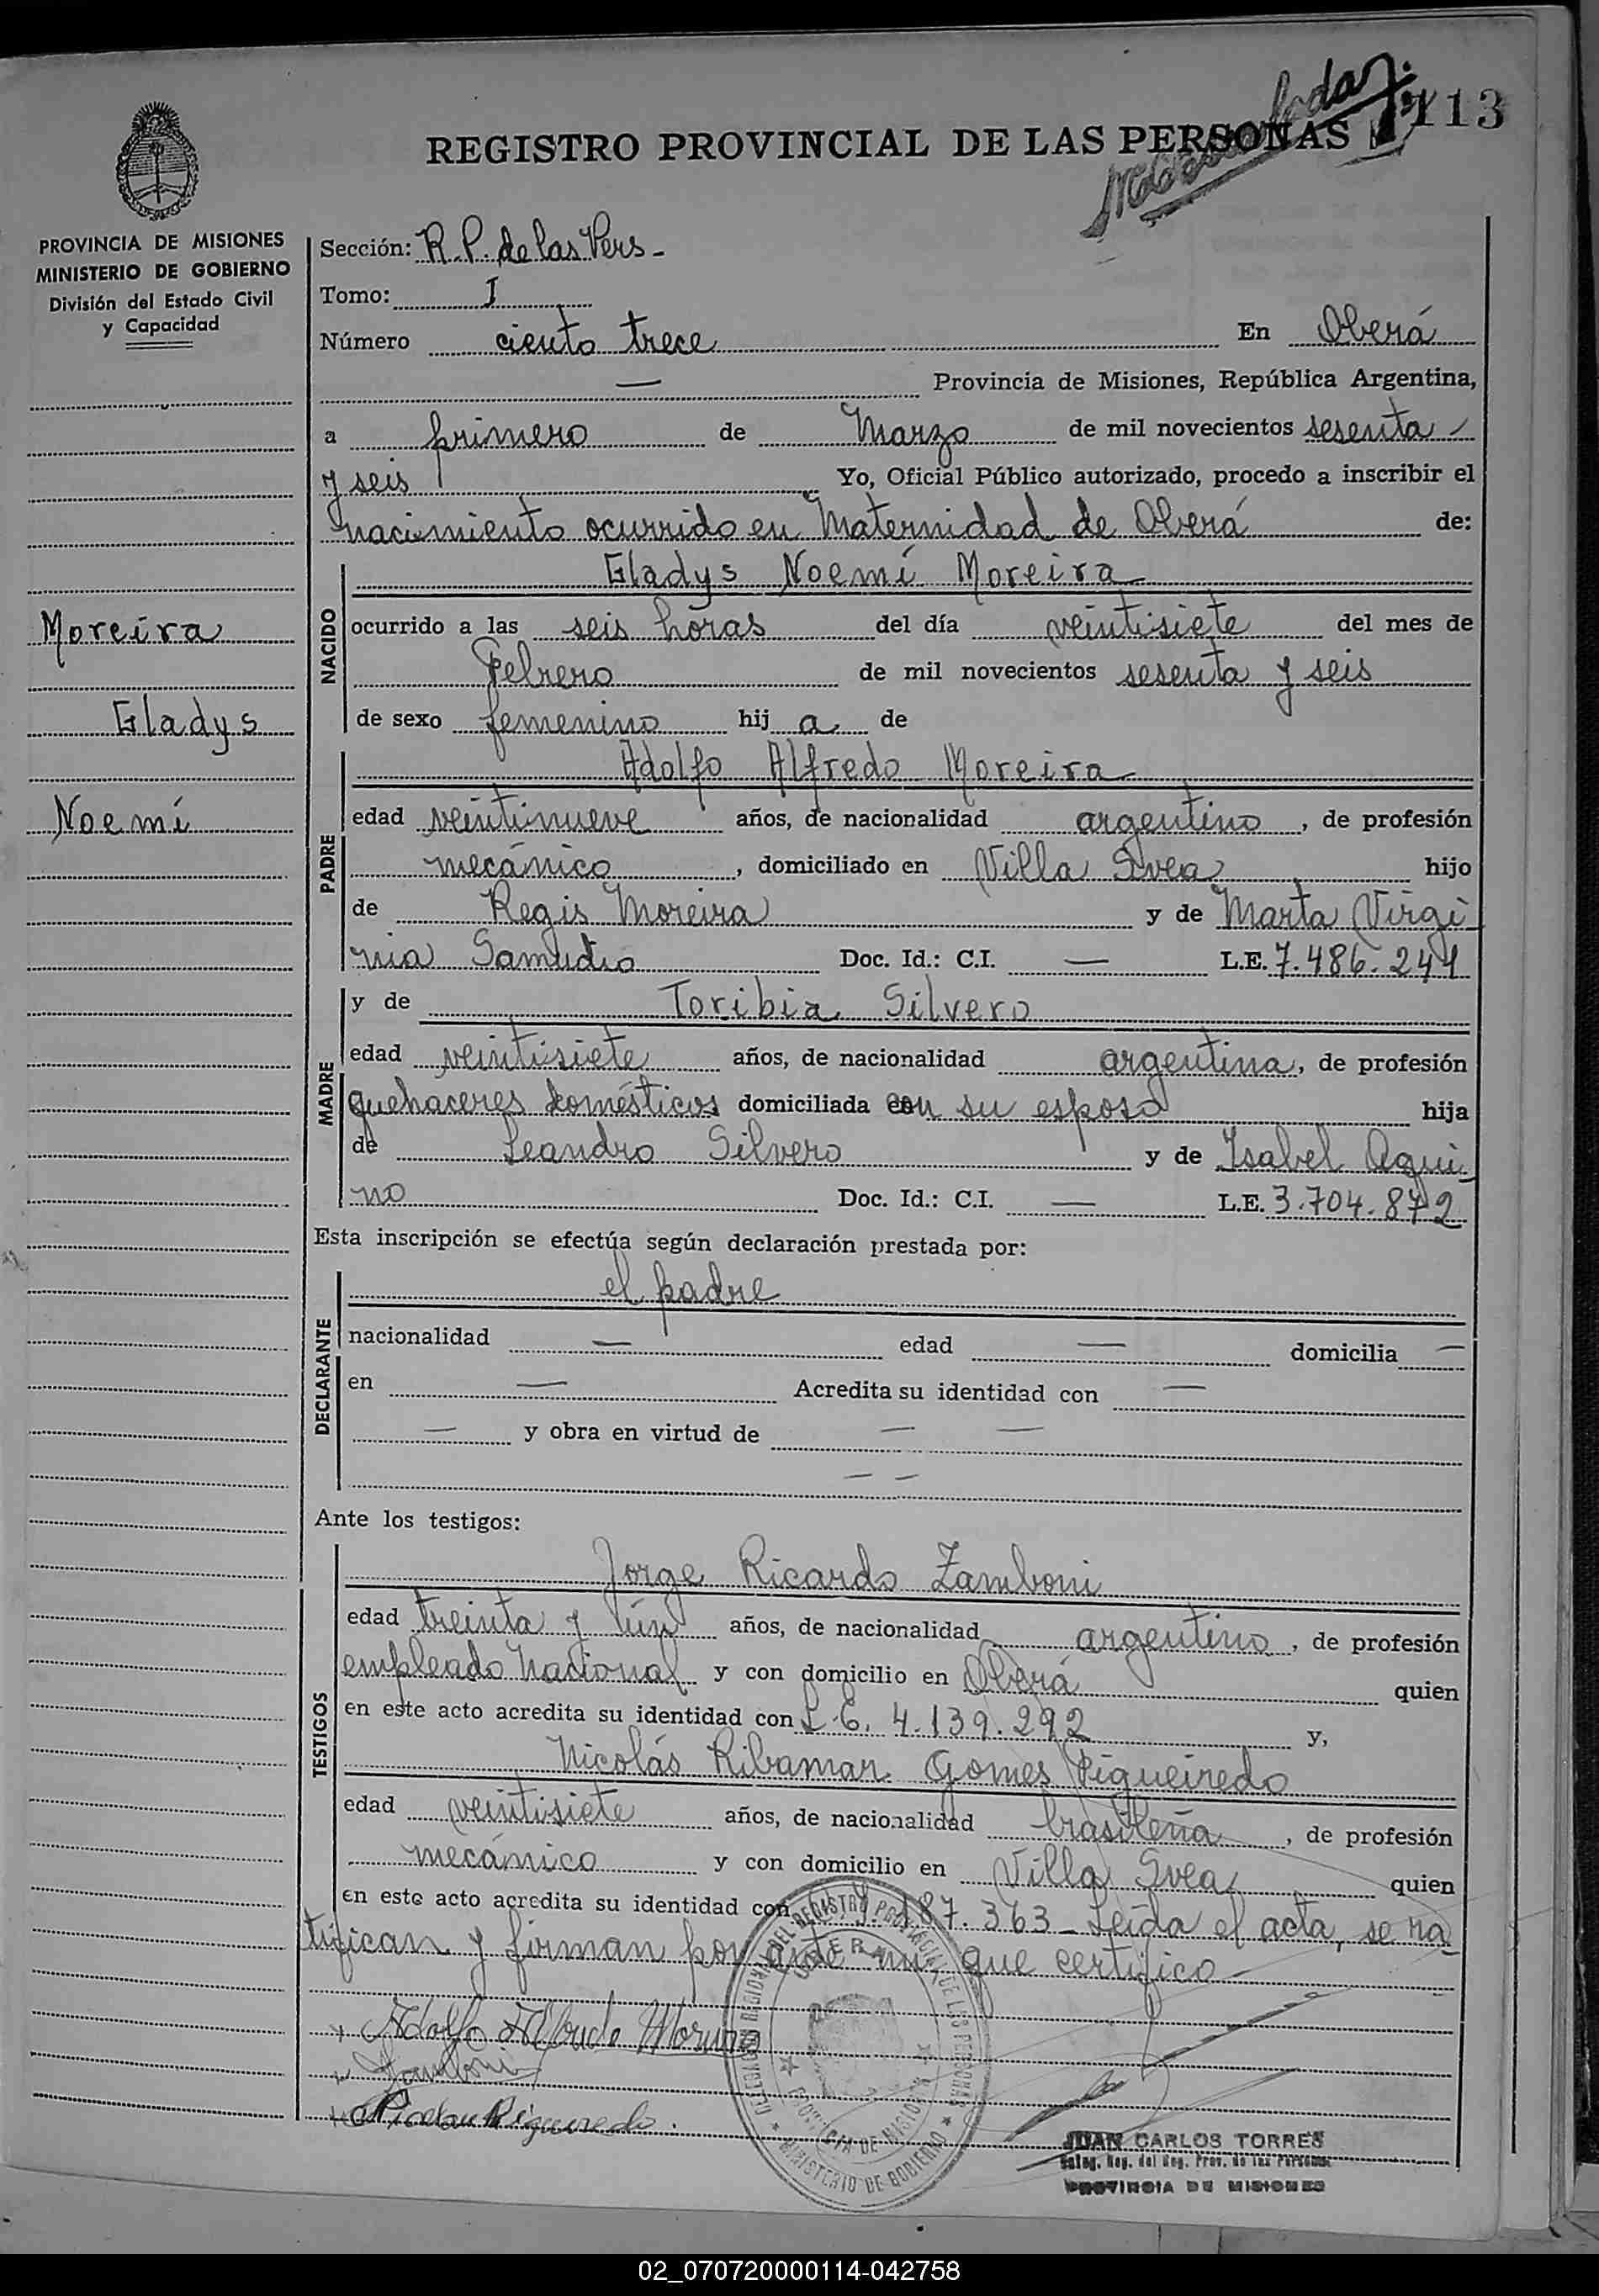 113
REGISTRO PROVINCIAL DE LAS PERSONAS
PROVINCIA DE MISIONES
MINISTERIO DE GOBIERNO
División del Estado Civil
y Capacidad
Moreira
Gladys
Noemí
Sección: R.P. de las Pers-
Tomo: I
Número ciento trece En Oberá
— Provincia de Misiones, República Argentina,
a primero de Marzo de mil novecientos sesenta
y seis Yo, Oficial Público autorizado, procedo a inscribir el
nacimiento ocurrido en Maternidad de Oberá de:
NACIDO
Gladys Noemí Moreira
ocurrido a las seis horas del día veintisiete del mes de
Febrero de mil novecientos sesenta y seis
de sexo femenino hij a de
PADRE
Adolfo Alfredo Moreira
edad veintinueve años, de nacionalidad argentino, de profesión
mecánico, domiciliado en Villa Svea hijo
de Regis Moreira y de Marta Virgi
nia Samudio Doc. Id.: C.I. — L.E. 7.486.241
MADRE
y de Toribia Silvero
edad veintisiete años, de nacionalidad argentina, de profesión
quehaceres domésticos domiciliada con su esposo hija
de Leandro Silvero y de Isabel Aqui-
no Doc. Id.: C.I. — L.E. 3.704.872
Esta inscripción se efectúa según declaración prestada por:
DECLARANTE
el padre
nacionalidad — edad — domicilia —
en — Acredita su identidad con —
— y obra en virtud de — —
— —
Ante los testigos:
TESTIGOS
Jorge Ricardo Zamboni
edad treinta y ún años, de nacionalidad argentino, de profesión
empleado Nacional y con domicilio en Oberá quien
en este acto acredita su identidad con L.E. 4.139.292 y,
Nicolás Ribamar Gomes Figueiredo
edad veintisiete años, de nacionalidad brasileña, de profesión
mecánico y con domicilio en Villa Svea quien
en este acto acredita su identidad con 187.363 - Leída el acta, se ra-
tifican y firman por ante mi que certifico
Adolfo Alfredo Moreira
Zamboni
Nicolau Figueiredo.
DELEGACION REGIONAL DEL REGISTRO PROVINCIAL DE LAS PERSONAS
OBERA
PROVINCIA DE MISIONES
MINISTERIO DE GOBIERNO
JUAN CARLOS TORRES
Deleg. Reg. del Reg. Prov. de las Personas
PROVINCIA DE MISIONES
02_070720000114-042758